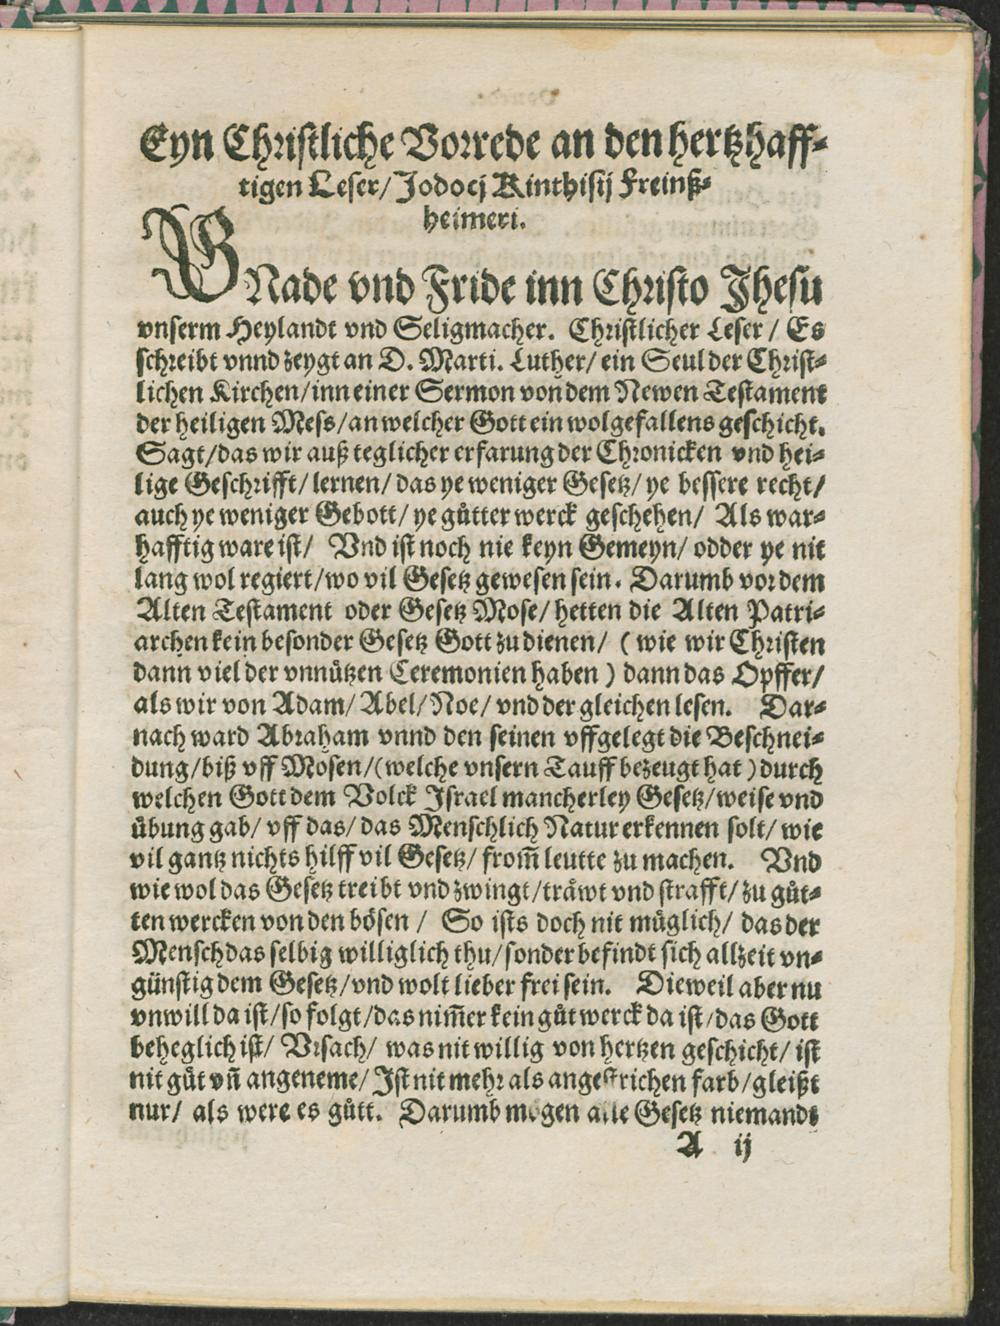 Eyn Christliche Vorrede an den hertzhaff⸗
tigen Leser/ Jodocj Kinthisij Freinß⸗
heimeri.
GNade vnd Fride inn Christo Jhesu
vnserm Heylandt vnd Seligmacher. Christlicher Leser / Es
schreibt vnnd zeygt an D. Marti. Luther/ ein Seul der Christ⸗
lichen Kirchen/ inn einer Sermon von dem Newen Testament
der heiligen Mess/ an welcher Gott ein wolgefallens geschicht.
Sagt/ das wir auß teglicher erfarung der Chronicken vnd hei⸗
lige Geschrifft/ lernen/ das ye weniger Gesetz/ ye bessere recht/
auch ye weniger Gebott/ ye gůtter werck geschehen/ Als war⸗
hafftig ware ist/ Vnd ist noch nie keyn Gemeyn/ odder ye nit
lang wol regiert/ wo vil Gesetz gewesen sein. Darumb vor dem
Alten Testament oder Gesetz Mose/ hetten die Alten Patri⸗
archen kein besonder Gesetz Gott zu dienen/ ( wie wir Christen
dann viel der vnnützen Ceremonien haben ) dann das Opffer/
als wir von Adam/ Abel/ Noe/ vnd der gleichen lesen. Dar⸗
nach ward Abraham vnnd den seinen vffgelegt die Beschnei⸗
dung/ biß vff Mosen/ (welche vnsern Tauff bezeugt hat ) durch
welchen Gott dem Volck Israel mancherley Gesetz/ weise vnd
übung gab/ vff das/ das Menschlich Natur erkennen solt/ wie
vil gantz nichts hilff vil Gesetz/ from̃ leutte zu machen. Vnd
wie wol das Gesetz treibt vnd zwingt/ tråwt vnd strafft/ zu gůt⸗
ten wercken von den bösen / So ists doch nit müglich/ das der
Mensch das selbig williglich thu/ sonder befindt sich allzeit vn⸗
günstig dem Gesetz/ vnd wolt lieber frei sein. Dieweil aber nu
vnwill da ist/ so folgt/ das nim̃er kein gůt werck da ist/ das Gott
beheglich ist/ Vrsach/ was nit willig von hertzen geschicht/ ist
nit gůt vñ angeneme/ Ist nit mehr als angestrichen farb/ gleißt
nur/ als were es gůtt. Darumb mögen alle Gesetz niemandt
A ij